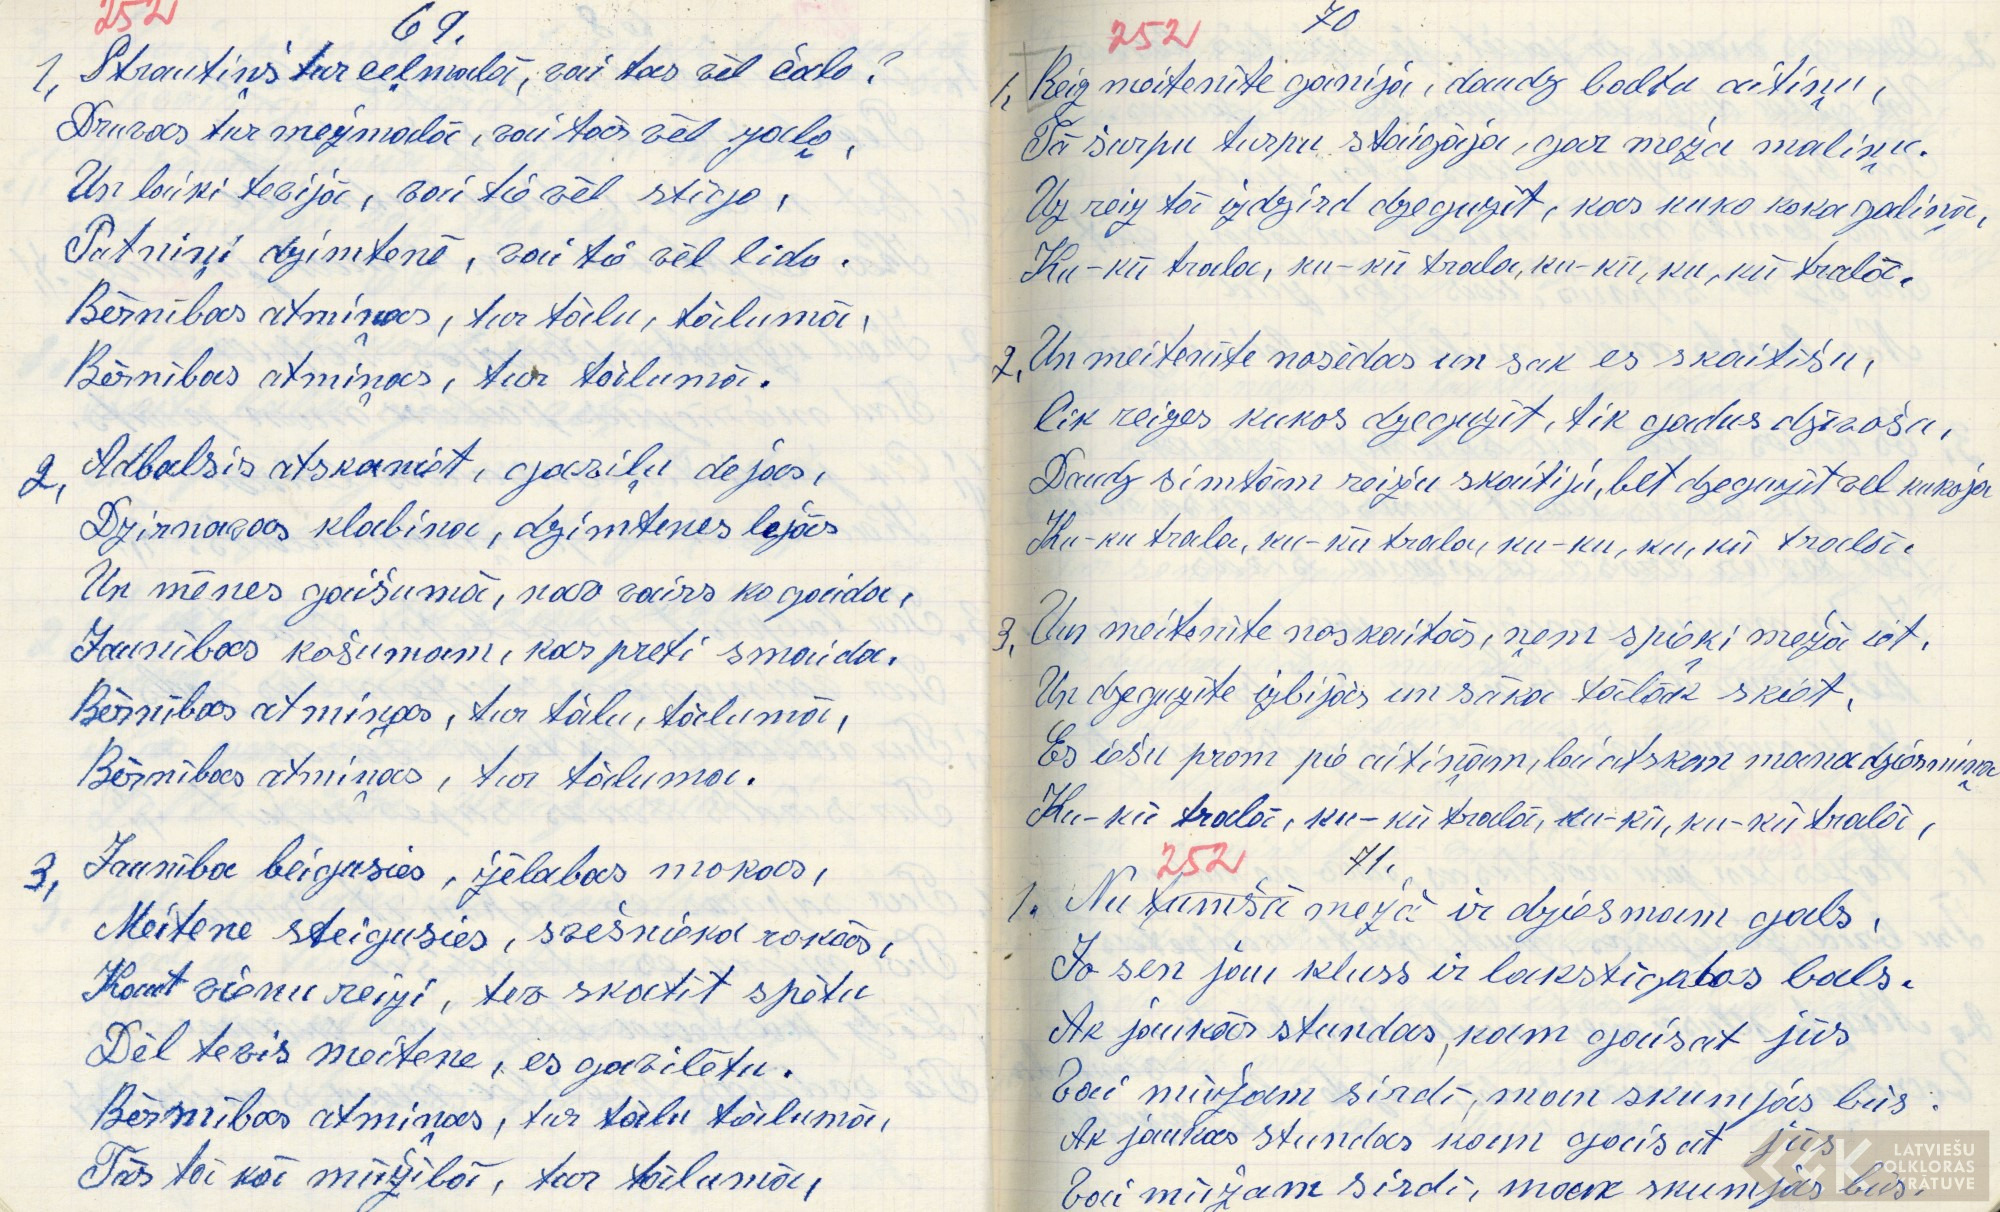 252
69.
1, Strautiņš tur ceļmalā, vai tas vēl čalo?
Druvas tur mežmalā, vai tās vēl zaļo,
Un lauki tevijā, vai tie vēl stiego,
Putniņi dzimtenē, vai tie vēl lido.
Bērnības atmiņas, tur tālu, tālumā,
Bērnības atmiņas, tur tālumā.
2, Adbalsis atskaniet, gaviļu dejas,
Dzirnavas klabina, dzimtenes lejās
Un mēnes gaišumā, nav vairs ko gaida,
Jaunības košumam, kas preti smaida.
Bērnības atmiņas, tur tālu, tālumā,
Bērnības atmiņas, tur tāluma.
3, Jauniba beigusies, iżēlabas mokas,
Meitene steigusies, svešnieka rokās,
Kaut vienu reizi, tev skatīt spētu
Dēl tevis meitene, es gavilētu.
Bērnības atmiņas, tur tālu tālumā,
Tās tā kā mūžībā, tur tālumā,
252
70
1, Reiz meitenīte ganīja, daudz baltu aitiņu,
Tā šurpu turpu staigāja, gar meža maliņu.
Uz reiz tā izdzird dzeguzīt, kas kuko koka galiņā,
Ku-kū trala, ku-kū trala, ku-kū, ku, kū tralā.
2, Un meitenīte nosēdas un sak es skaitīšu,
Cik reizes kukos dzeguzīt, tik gadus dzīvošu,
Daudz simtām reižu skaitīju, bet dzeguzīt vēl kukoja
Ku-ku trala, ku-kū trala, ku-ku, ku, kū tralā.
3, Un meitenīte noskaitās, ņem spieķi mežā iet,
Un dzeguzīte izbijās un sāka tālāk skriet,
Es iešu prom pie aitiņām, lai atskan mana dziesmiņa
Ku-kū tralā, ku-kū tralā, ku-kū, ku-kū tralā,
252
71.
1. Nu tumšā mežā ir dziesmam gals,
Jo sen jau kluss ir lakstigalas bals.
Ak jaukās stundas, kam gaisat jūs
Vai mūžam sirdī, man skumjās būs.
Ak jaukas stundas kam gaisat jūs
Vai mūžam sirdī, man skumjās būs.
LATVIEŠU
FOLKLORAS
KRĀTUVE